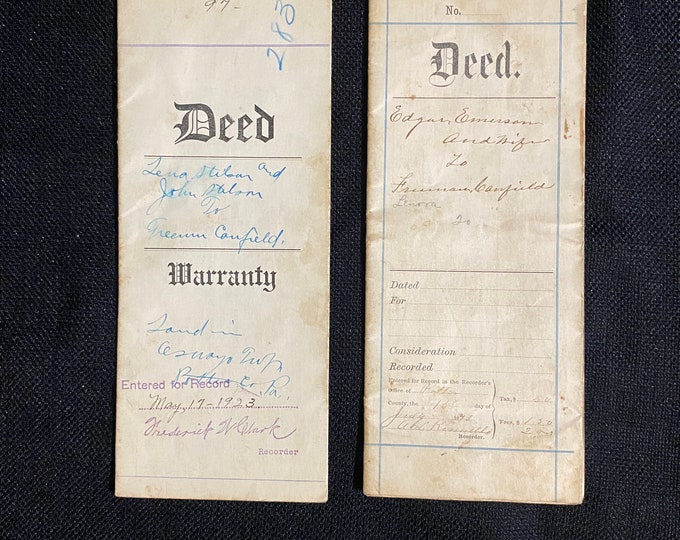 97-
283
Deed
Lena Nelson and
John Nelson
To
Freeman Canfield.
Warranty
Land in
Oswayo Twp
Potter Co. Pa.
Entered for Record
May 17-1923
Frederick W Clark
Recorder
No.
Deed.
Edgar Emerson
And Wife
To
Freeman Canfield
Lenora
To
Dated
For
Consideration
Recorded
Entered for Record in the Recorder's
Office of Potter
County, the day of
Tax, $
Fees, $
Recorder.